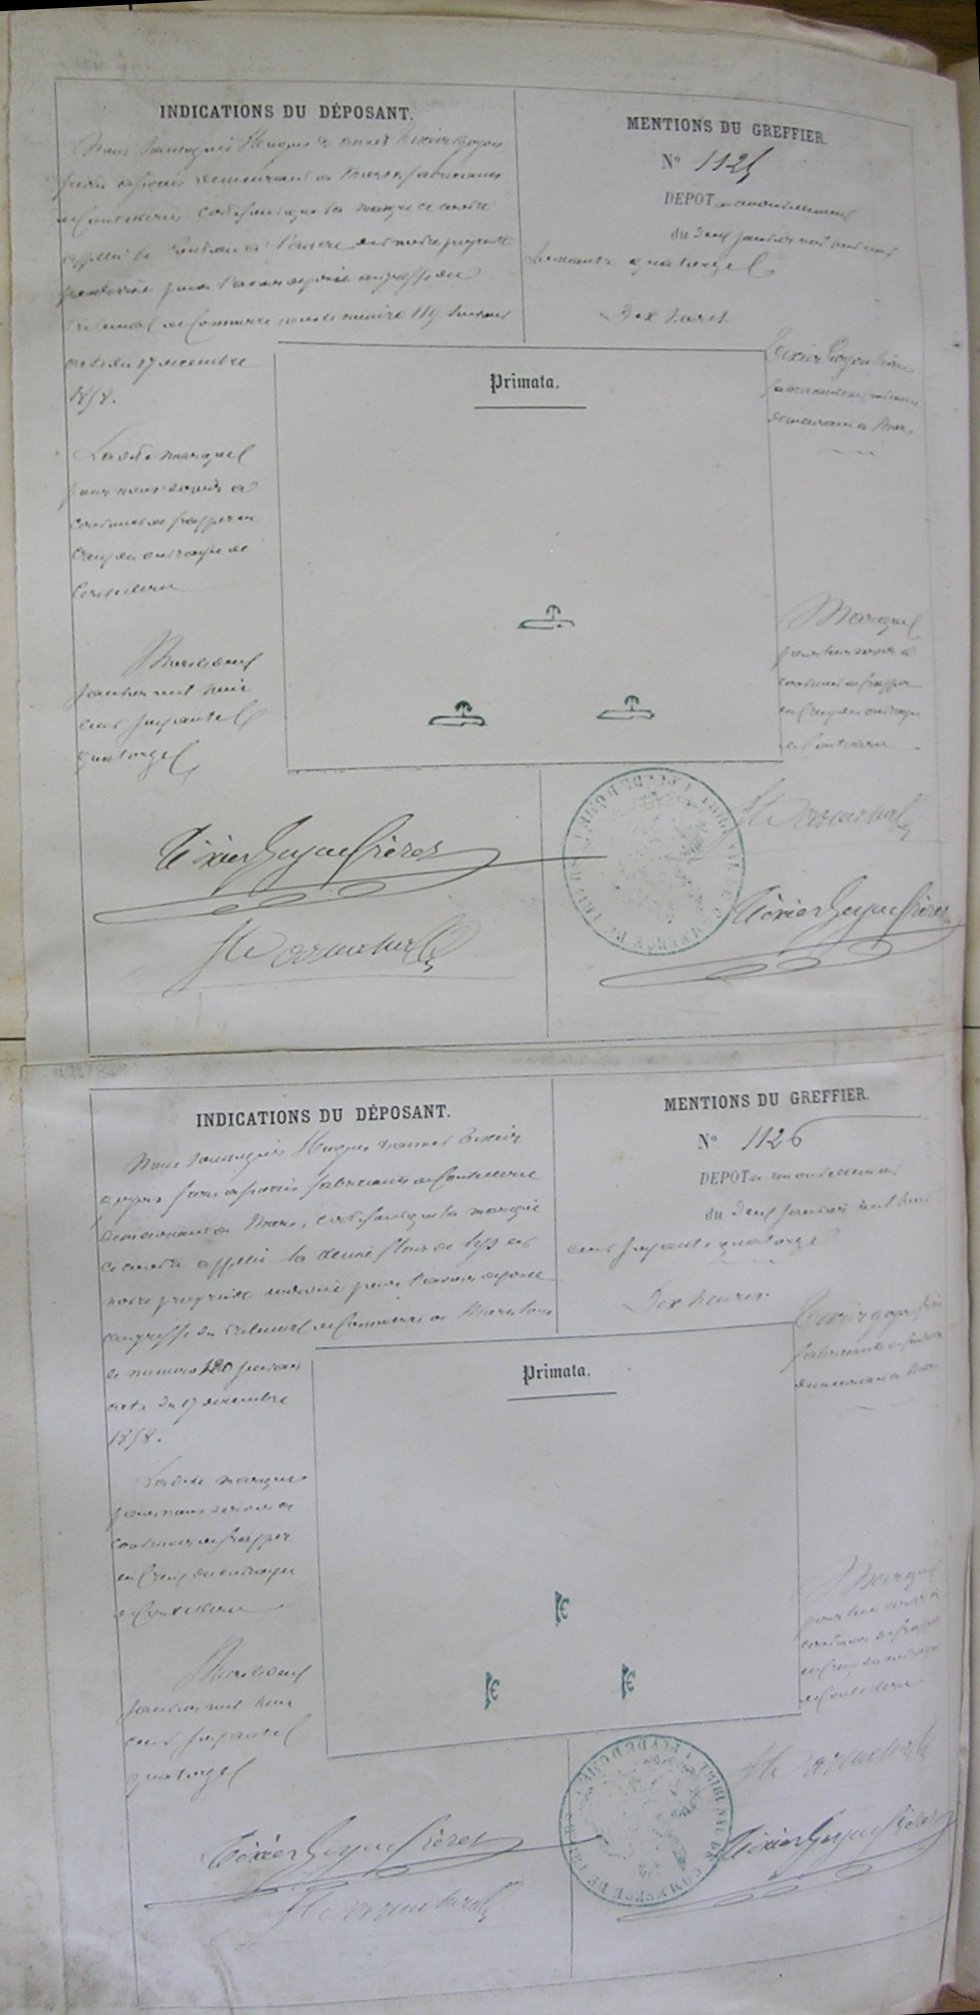 INDICATIONS DU DÉPOSANT.
Nous soussignés Hugues & annet Tixier Goyon
frères associés demeurant à Thiers fabricants
de Coutellerie certifions que la marque ci contre
notre propriété
pour l'avoir déposée au greffe du
Tribunal de Commerce sous le numéro 119 suivant
acte du 17 decembre
1858.
La dite marque
pour nous servir à
continuer de frapper en
creux des ouvrages de
Coutellerie
Thiers deux
janvier mil huit
cent soixante
quatorze
MENTIONS DU GREFFIER.
N° 1125
DEPOT en renouvellement
du deux janvier mil huit cent
soixante quatorze
Dix heures
Tixier Goyon frères
fabricants de Coutellerie
demeurant à Thiers
Primata.
Marque
pour leur servir à
continuer de frapper
en creux des ouvrages
de Coutellerie
Tixier Goyon frères
Tixier Goyon frères
INDICATIONS DU DÉPOSANT.
Nous soussignés Hugues & annet Tixier
goyon frères associés fabricants de Coutellerie
demeurant à Thiers, certifions que la marque
ci contre appelée la demie fleur de lys est
notre propriété pour l'avoir déposée
au greffe du Tribunal de Commerce de Thiers sous
le numéro 120 suivant
acte du 17 decembre
1858.
La dite marque
pour nous servir à
continuer de frapper
en creux des ouvrages
de Coutellerie
Thiers deux
janvier mil huit
cent soixante
quatorze
MENTIONS DU GREFFIER.
N° 1126
DEPOT en renouvellement
du deux janvier mil huit
cent soixante quatorze
Dix heures.
Tixier goyon frères
fabricants de Coutellerie
demeurant à Thiers
Primata.
Marque
pour leur servir à
continuer de frapper
en creux des ouvrages
de Coutellerie
Tixier Goyon frères
Tixier Goyon frères